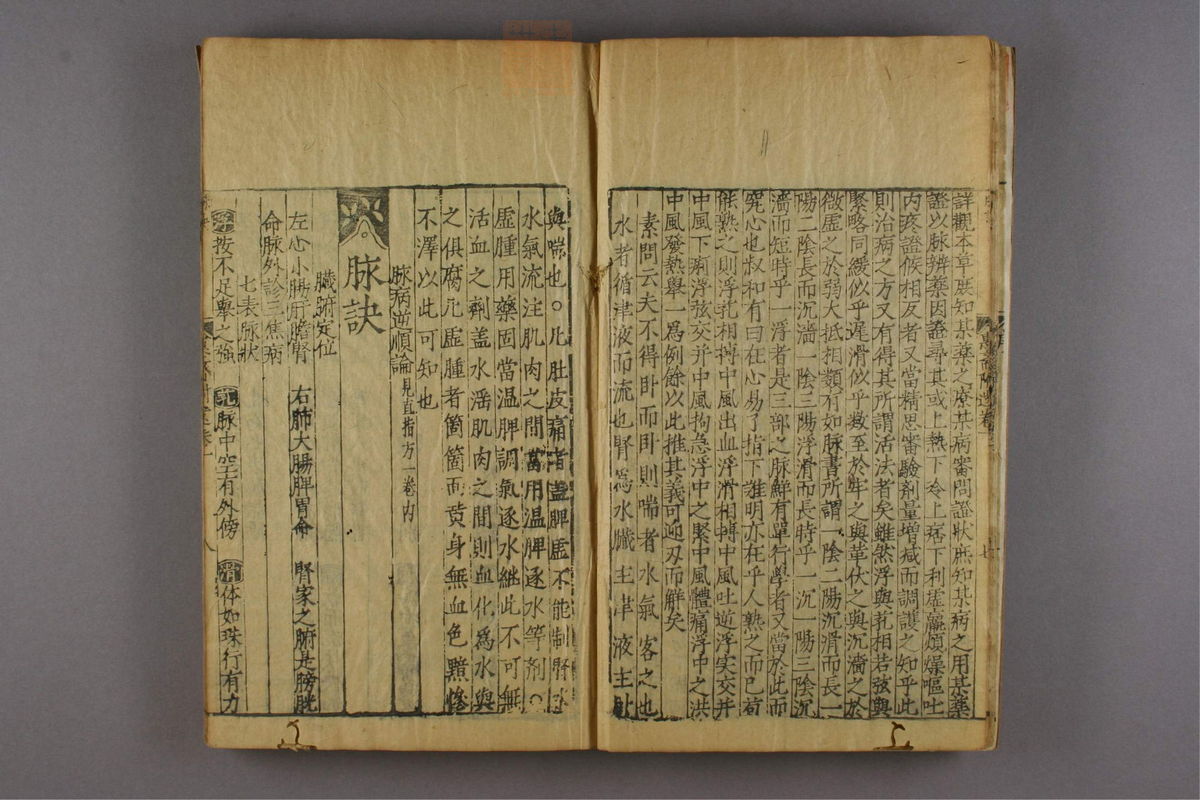 詳觀本草庶知某藥之療某病審問證狀庶知某病之用某藥
證以脉辨藥因證尋其或上熱下冷上痞下利虛羸煩燥嘔吐
内疼證候相反者又當精思審驗劑量增减而調護之知乎此
則治病之方又有得其所謂活法者矣雖然浮與芤相若弦與
緊略同緩似乎遲滑似乎數至於牢之與革伏之與沉濇之於
微虛之於弱大抵相類有如脉書所謂一陰二陽沉滑而長一
陽二陰長而沉濇一陰三陽浮滑而長時乎一沉一陽三陰沉
濇而短時乎一浮者是三部之脉鮮有單行學者又當於此而
究心也叔和有曰在心易了指下難明亦在乎人熟之而已苟
能熟之則浮芤相摶中風出血浮滑相摶中風吐逆浮实交并
中風下痢浮弦交并中風拘急浮中之緊中風體痛浮中之洪
中風發熱舉一爲例餘以此推其義可迎刃而解矣
素問云夫不得卧而卧則喘者水氣客之也
水者循津液而流也腎爲水臟主津液主卧
與喘也○凡肚皮痛者盖脾虛不能制腎水
水氣流注肌肉之間當用温脾逐水等劑○
虛腫用藥固當温脾調氣逐水継此不可無
活血之劑盖水滛肌肉之間則血化爲水與
之俱腐凡虛腫者箇箇面黄身無血色黯慘
不澤以此可知也
脉病逆順論見直指方一卷内
脉訣
臟腑定位
左心小腸肝膽腎 右肺大腸脾胃命 腎家之腑是膀胱
命脉外診三焦病
七表脉状
浮按不足舉之強 芤脉中空有外傍 滑体如珠行有力